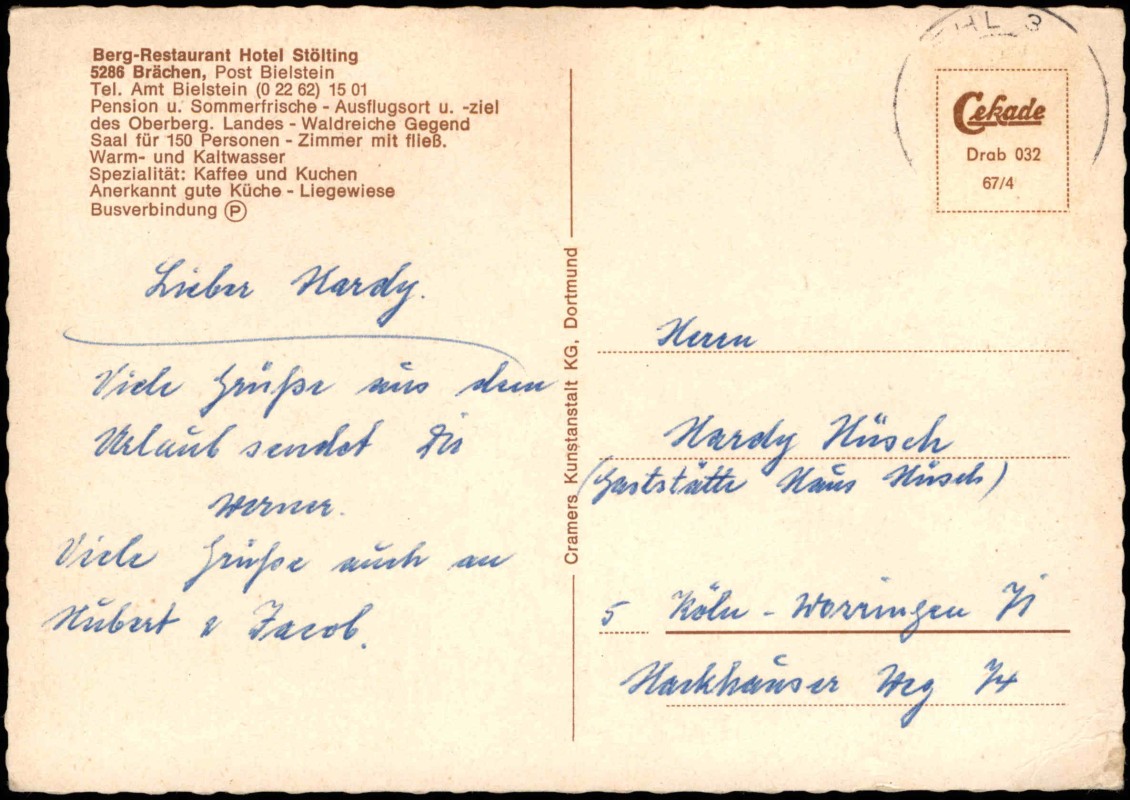 Berg-Restaurant Hotel Stölting
5286 Brächen, Post Bielstein
Tel. Amt Bielstein (0 22 62) 15 01
Pension u. Sommerfrische - Ausflugsort u. -ziel
des Oberberg. Landes - Waldreiche Gegend
Saal für 150 Personen - Zimmer mit fließ.
Warm- und Kaltwasser
Spezialität: Kaffee und Kuchen
Anerkannt gute Küche - Liegewiese
Busverbindung Ⓟ
Lieber Hardy.
Viele Grüße aus dem
Urlaub sendet Dir
Werner.
Viele Grüße auch an
Hubert u Jacob.
Cramers Kunstanstalt KG, Dortmund
HL 3
Cekade
Drab 032
67/4
Herrn
Hardy Hüsch
(Gaststätte Haus Hüsch)
5 Köln - Worringen 71
Hackhauser Weg 74